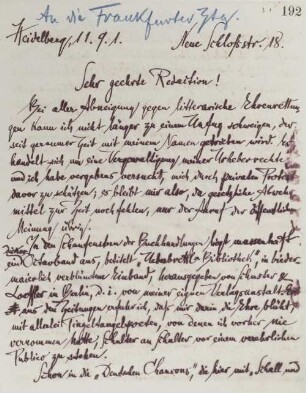 An die Frankfurter Ztg.
192
Heidelberg, 11.9.1. Neue Schloßstr. 18.
Sehr geehrte Redaction!
Bei aller Abneigung gegen litterarische Ehrenrettun-
gen kann ich nicht länger zu einem Unfug schweigen, der
seit geraumer Zeit mit meinem Namen getrieben wird. Es
handelt sich um eine Vergewaltigung meiner Urheberrechte
und ich habe vergebens versucht, mich durch privaten Protest
davor zu schützen; es bleibt mir also, da gesetzliche Abwehr-
mittel zur Zeit noch fehlen, nur der Anruf der öffentlichen
Meinung übrig.
In den Schaufenstern der Buchhandlungen liegt massenhaft
ein Octavband aus, betitelt „Ueberbrettl-Bibliothek", in bieder-
maierlich verblümtem Einband, herausgegeben von Schuster &
Loeffler in Berlin, d. i. von meiner eignen Verlagsanstalt.
aus den Zeitungen erfuhr ich, daß mir darin die Ehre blüht,
mit allerlei Tingeltangelpoeten, von denen ich vorher nie
vernommen hatte, Schulter an Schulter vor einem verehrlichen
Publico zu stehen.
Schon in die „Deutschen Chansons", die hier mit „Schall und